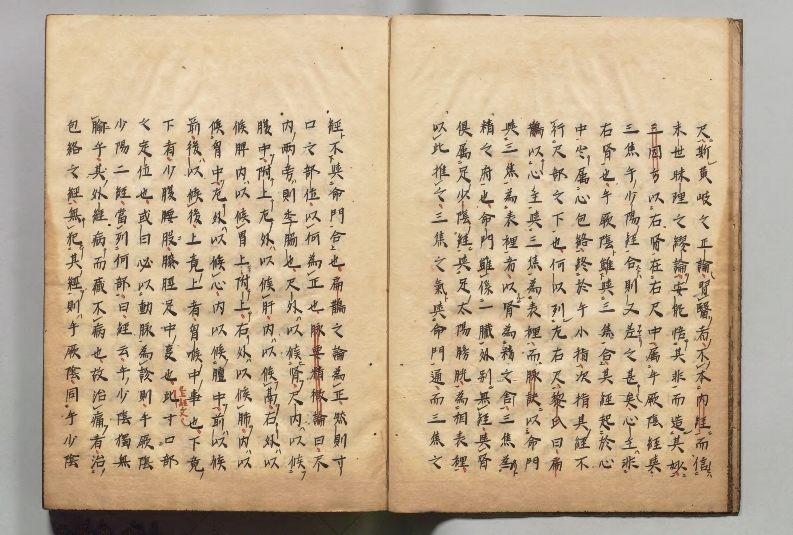 尺斯黄岐之正論習醫者不本内經而信
末世昧理之繆論安能悟其非而造其妙
三因方以右腎在右尺中属手厥陰經與
三焦手少陽經合則又差之甚矣心主非
右腎也手厥陰雖與三焦合其經起於心
中出属心包絡終於手小指次指其經不
行尺部之下也何以列左右尺黎氏曰扁
鵲以心主與三焦為表裡而脉訣以命門
與三焦為表裡者以腎為精之舍三焦為
精之府也命門雖係一臓外別無經與腎
倶属足少陰經與足太陽膀胱為相表裡
以此推之三焦之氣與命門通而三焦之
經不與命門合也扁鵲之論為正然則寸
口之部位以何為正也脉要精微論曰尺
内兩旁則季脇也尺外以候腎尺内以候
腹中附上左外以候肝内以候鬲右外以
候脾内以候胃上附上右外以候肺内以
候胷中左外以候心内以候膻中前以候
前後以候後上竟上者胷喉中事也下竟
下者少腹腰股膝脛足中事也此寸口部
之定位也或曰必以動脉為診則手厥陰
少陽二經當列何部曰經云手少陰獨無
腧乎其外經病而藏不病也故治病者治
包絡之經無犯其經則手厥陰同手少陰